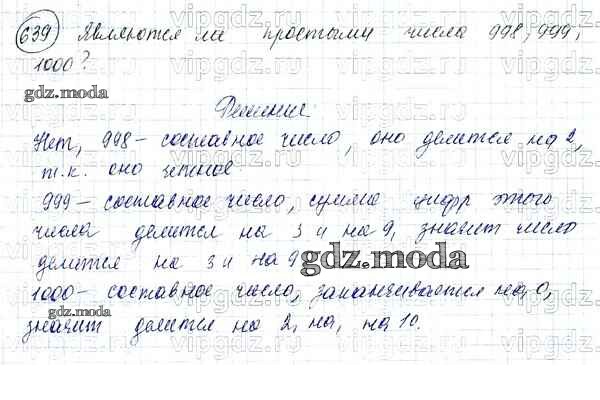 639 Являются ли простыми числа 998, 999,
1000?
gdz.moda
Решение:
Нет, 998 - составное число, оно делится на 2,
т.к. оно четное.
999 - составное число, сумма цифр этого
числа делится на 3 и на 9, значит число
делится на 3 и на 9
gdz.moda
1000 - составное число, заканчивается на 0,
значит делится на 2, на, на 10.